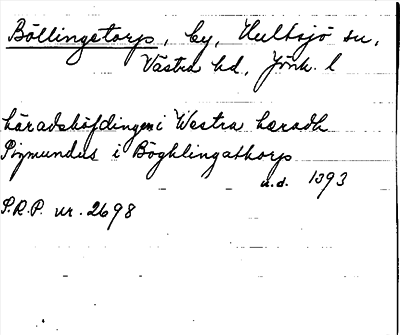 Böllingstorp, by, Hultsjö sn,
Västra hd, Jönk. l
häradshöfdingen i Westra hæradh
Sigmundus i Böghlingathorp
u.d. 1393
S.R.P. nr. 2698